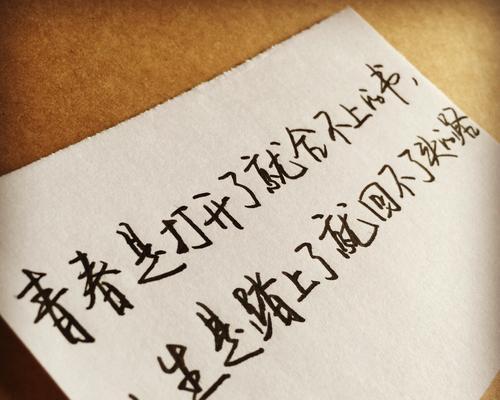 青春是打开了就合不上的书，
生是踏上了就回不了头的路